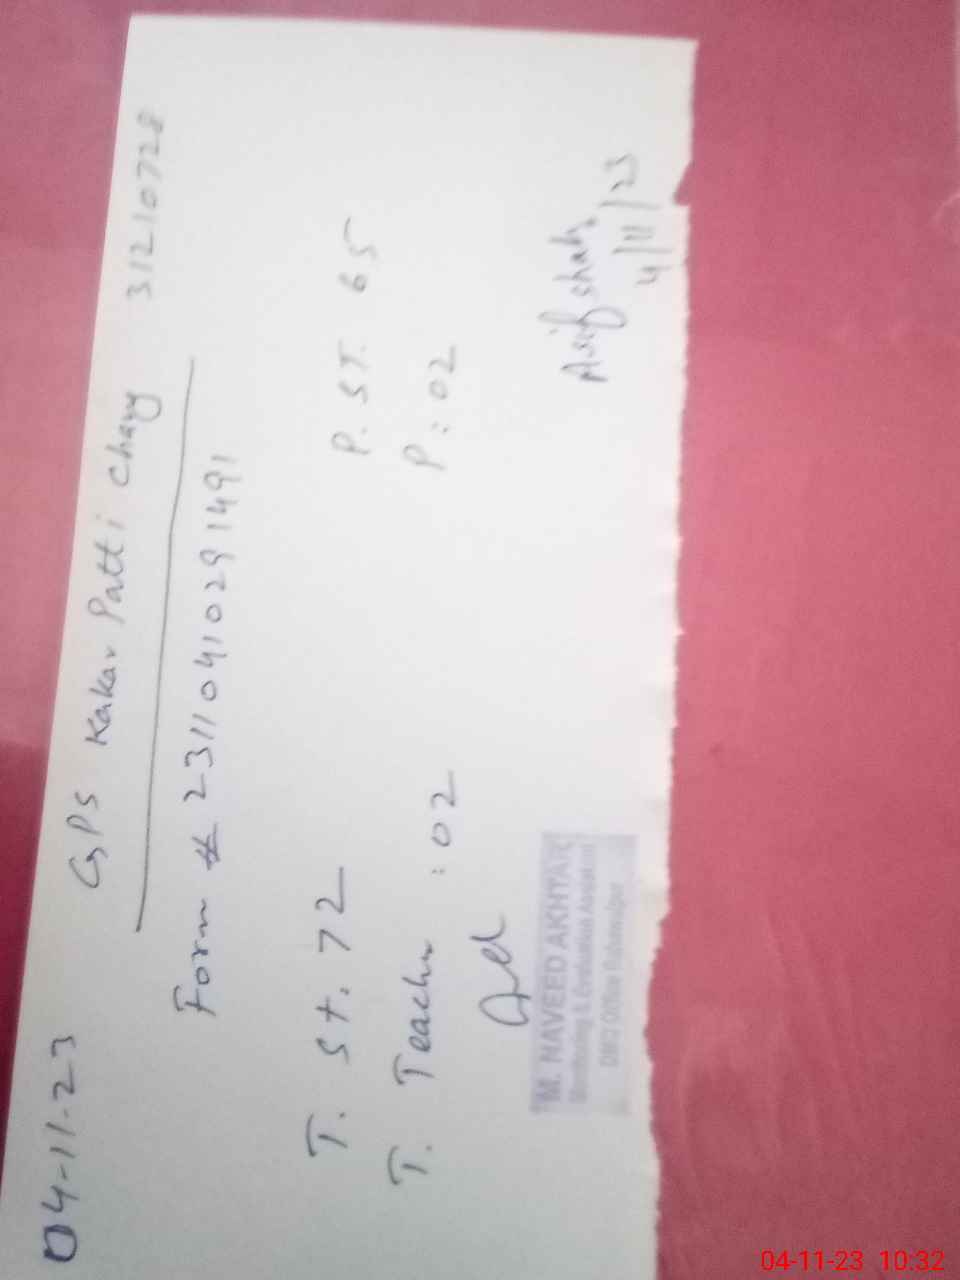 04-11-23 GPS Kakar Patti Chany 31210728
Form # 23110410291491
T. St. 72 P. ST. 65
T. Teacher : 02 P : 02
Asif shah.
4/11/23
M. NAVEED AKHTAR
Monitoring & Evaluation Assistant
Office
04-11-23 10:32